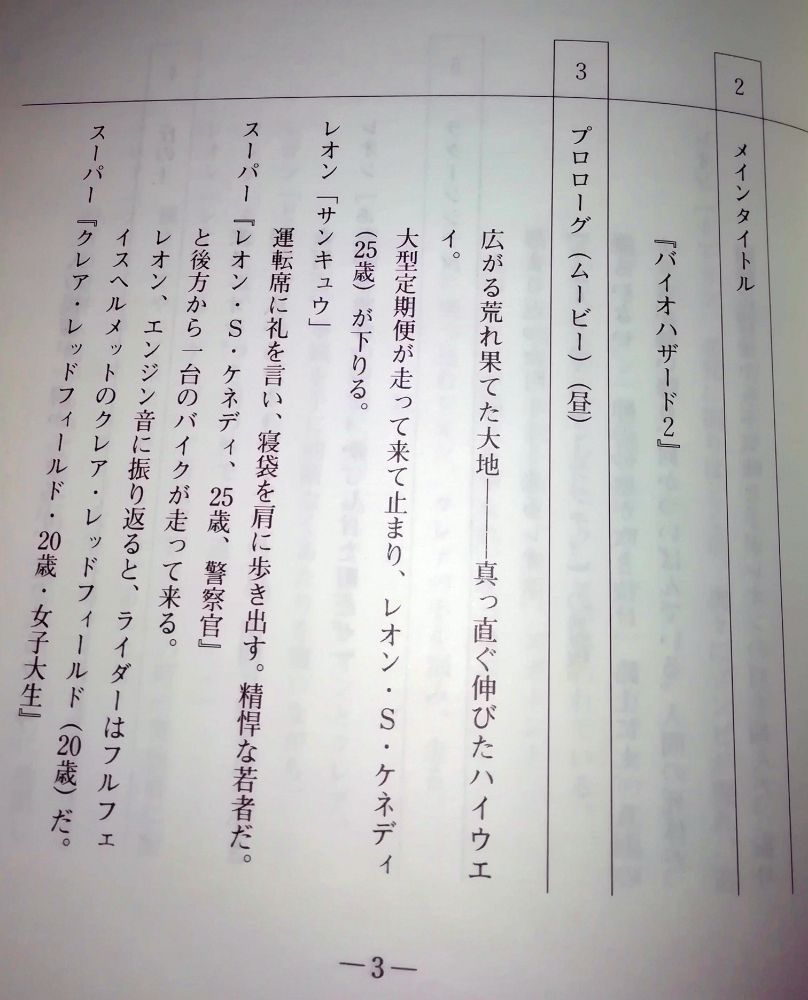 2
メインタイトル
『バイオハザード2』
3
プロローグ（ムービー）（昼）
広がる荒れ果てた大地―――真っ直ぐ伸びたハイウエ
イ。
大型定期便が走って来て止まり、レオン・S・ケネディ
（25歳）が下りる。
レオン「サンキュウ」
運転席に礼を言い、寝袋を肩に歩き出す。精悍な若者だ。
スーパー『レオン・S・ケネディ、25歳、警察官』
と後方から一台のバイクが走って来る。
レオン、エンジン音に振り返ると、ライダーはフルフェ
イスヘルメットのクレア・レッドフィールド（20歳）だ。
スーパー『クレア・レッドフィールド・20歳・女子大生』
―3―